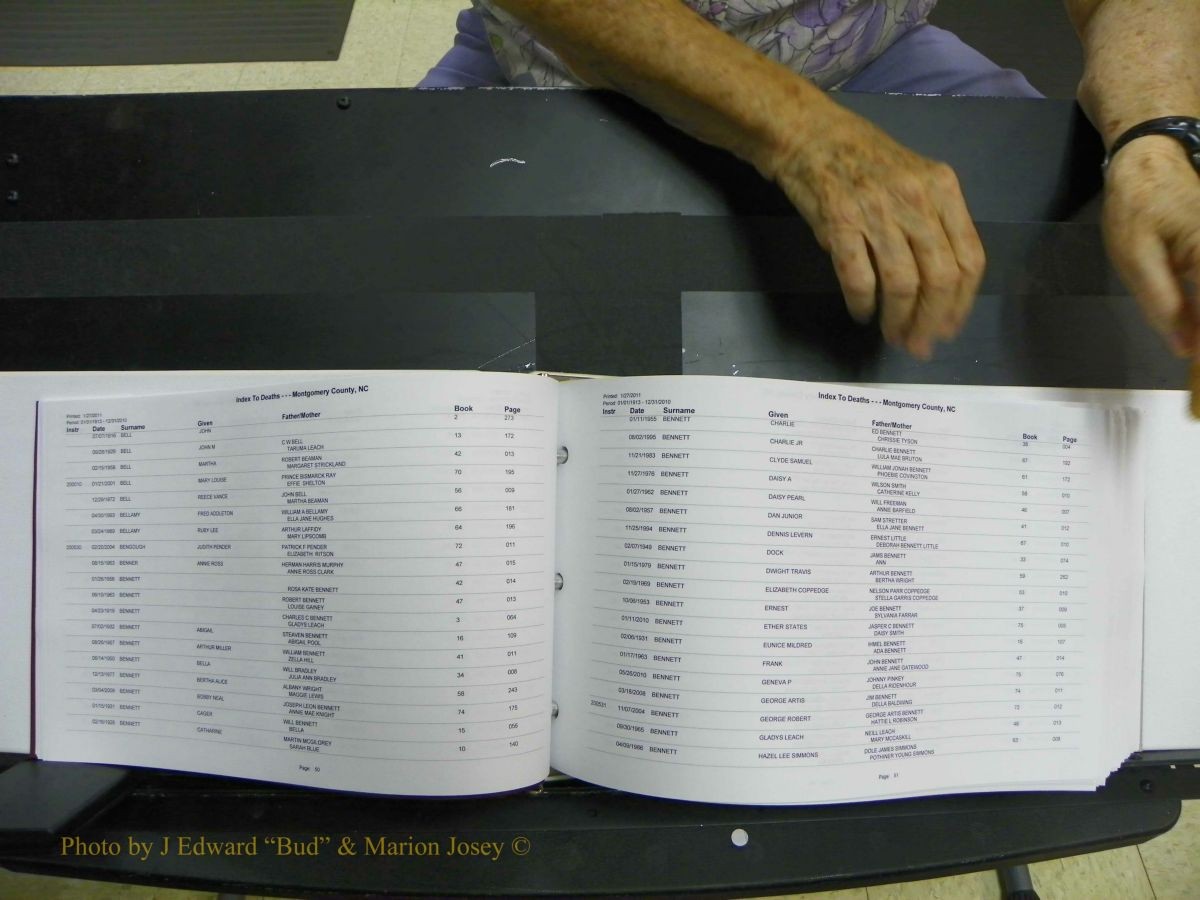 Printed: 1/27/2011
Period: 01/01/1913 - 12/31/2010
Index To Deaths - - - Montgomery County, NC
Instr Date Surname Given Father/Mother Book Page
BELL JOHN 2 273
BELL JOHN M C W BELL 13 172
TARUMA LEACH
BELL MARTHA ROBERT BEAMAN 42 013
MARGARET STRICKLAND
01/21/2001 BELL MARY LOUISE PRINCE BISMARCK RAY 70 195
EFFIE SHELTON
12/29/1972 BELL REECE VANCE JOHN BELL 56 009
MARTHA BEAMAN
BELLAMY FRED ADDLETON WILLIAM A BELLAMY 66 181
ELLA JANE HUGHES
BELLAMY RUBY LEE ARTHUR LAFFIDY 64 196
MARY LIPSCOMB
02/20/2004 BENGOUGH JUDITH PENDER PATRICK F PENDER 72 011
ELIZABETH RITSON
BENNER ANNIE ROSS HERMAN HARRIS MURPHY 47 015
ANNIE ROSS CLARK
BENNETT 42 014
ROSA KATE BENNETT
BENNETT ROBERT BENNETT 47 013
LOUISE GAINEY
BENNETT CHARLES C BENNETT 3 064
GLADYS LEACH
BENNETT ABIGAIL STEAVEN BENNETT 16 109
ABIGAIL POOL
BENNETT ARTHUR MILLER WILLIAM BENNETT 41 011
ZELLA HILL
BENNETT BELLA WILL BRADLEY 34 008
JULIA ANN BRADLEY
BENNETT BERTHA ALICE ALBANY WRIGHT 58 243
MAGGIE LEWIS
BENNETT BOBBY NEAL JOSEPH LEON BENNETT 74 175
ANNIE MAE KNIGHT
BENNETT CAGER WILL BENNETT 15 055
BELLA
BENNETT CATHARINE MARTIN MCGILOREY 10 140
SARAH BLUE
Page: 50
Printed: 1/27/2011
Period: 01/01/1913 - 12/31/2010
Index To Deaths - - - Montgomery County, NC
Instr Date Surname Given Father/Mother Book Page
01/11/1955 BENNETT CHARLIE ED BENNETT 38 004
CHRISSIE TYSON
08/02/1995 BENNETT CHARLIE JR CHARLIE BENNETT 67 192
LULA MAE BRUTON
11/21/1983 BENNETT CLYDE SAMUEL WILLIAM JONAH BENNETT 61 172
PHOEBIE COVINGTON
11/27/1976 BENNETT DAISY A WILSON SMITH 58 010
CATHERINE KELLY
01/27/1962 BENNETT DAISY PEARL WILL FREEMAN 46 007
ANNIE BARFIELD
08/02/1957 BENNETT DAN JUNIOR SAM STRETTER 41 012
ELLA JANE BENNETT
11/25/1994 BENNETT DENNIS LEVERN ERNEST LITTLE 67 010
DEBORAH BENNETT LITTLE
02/07/1949 BENNETT DOCK JAMS BENNETT 33 014
ANN
01/15/1979 BENNETT DWIGHT TRAVIS ARTHUR BENNETT 59 252
BERTHA WRIGHT
02/19/1969 BENNETT ELIZABETH COPPEDGE NELSON PARR COPPEDGE 53 010
STELLA GARRIS COPPEDGE
10/06/1953 BENNETT ERNEST JOE BENNETT 37 009
SYLVANIA FARRAR
01/11/2010 BENNETT ETHER STATES JASPER C BENNETT 75 005
DAISY SMITH
02/06/1931 BENNETT EUNICE MILDRED IHMEL BENNETT 16 107
ADA BENNETT
01/17/1963 BENNETT FRANK JOHN BENNETT 47 014
ANNIE JANE GATEWOOD
05/26/2010 BENNETT GENEVA P JOHNNY PINKEY 75 076
DELLA RIDENHOUR
03/18/2008 BENNETT GEORGE ARTIS JIM BENNETT 74 011
DELLA BALDWING
200531 11/07/2004 BENNETT GEORGE ROBERT GEORGE ARTIS BENNETT 72 012
HATTIE L ROBINSON
09/30/1965 BENNETT GLADYS LEACH NEILL LEACH 49 013
MARY MCCASKILL
04/09/1986 BENNETT HAZEL LEE SIMMONS DOLE JAMES SIMMONS 62 009
POTHINER YOUNG SIMMONS
Page: 51
Photo by J Edward “Bud” & Marion Josey ©